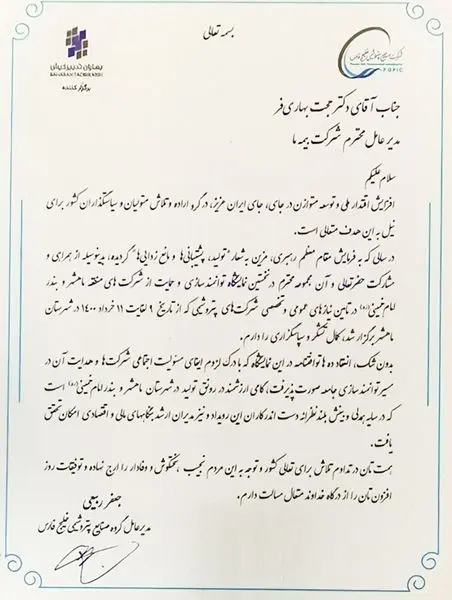 بسمه تعالی
شرکت صنایع پتروشیمی خلیج فارس
PGPIC
بهاران تدبیر کیش
BAHARAN TADBIR KISH
برگزار کننده
جناب آقای دکتر حجت بهاری فر
مدیر عامل محترم شرکت بیمه ما
سلام علیکم
افزایش اقتدار ملی و توسعه متوازن در جای، جای ایران عزیز، در گرو اراده و تلاش متولیان و سیاستگذاران کشور برای
نیل به این هدف متعالی است.
در سالی که به فرمایش مقام معظم رهبری، مزین به شعار "تولید، پشتیبانی‌ها و مانع زدایی‌ها" گردیده، بدینوسیله از همراهی و
مشارکت حضرتعالی و آن مجموعه محترم در نخستین نمایشگاه توانمند سازی و حمایت از شرکت های منطقه ماهشهر و بندر
امام خمینی(ره) در تامین نیازهای عمومی و تخصصی شرکت‌های پتروشیمی که از تاریخ ۹ لغایت ۱۱ خرداد ۱۴۰۰ در شهرستان
ماهشهر برگزار شد، کمال تشکر و سپاسگزاری را دارم.
بدون شک، انعقاد ده ها توافقنامه در این نمایشگاه که با درک لزوم ایفای مسئولیت اجتماعی شرکت‌ها و هدایت آن در
مسیر توانمند سازی جامعه صورت پذیرفت، گامی ارزشمند در رونق تولید در شهرستان ماهشهر و بندر امام خمینی(ره) است
که در سایه همدلی و بینش بلند نظرانه دست اندرکاران این رویداد و نیز مدیران ارشد بنگاههای مالی و اقتصادی امکان تحقق
یافت.
همت تان در تداوم تلاش برای تعالی کشور و توجه به این مردم نجیب، سختکوش و وفادار را ارج نهاده و توفیقات روز
افزون تان را از درگاه خداوند متعال مسالت دارم.
جعفر ربیعی
مدیرعامل گروه صنایع پتروشیمی خلیج فارس